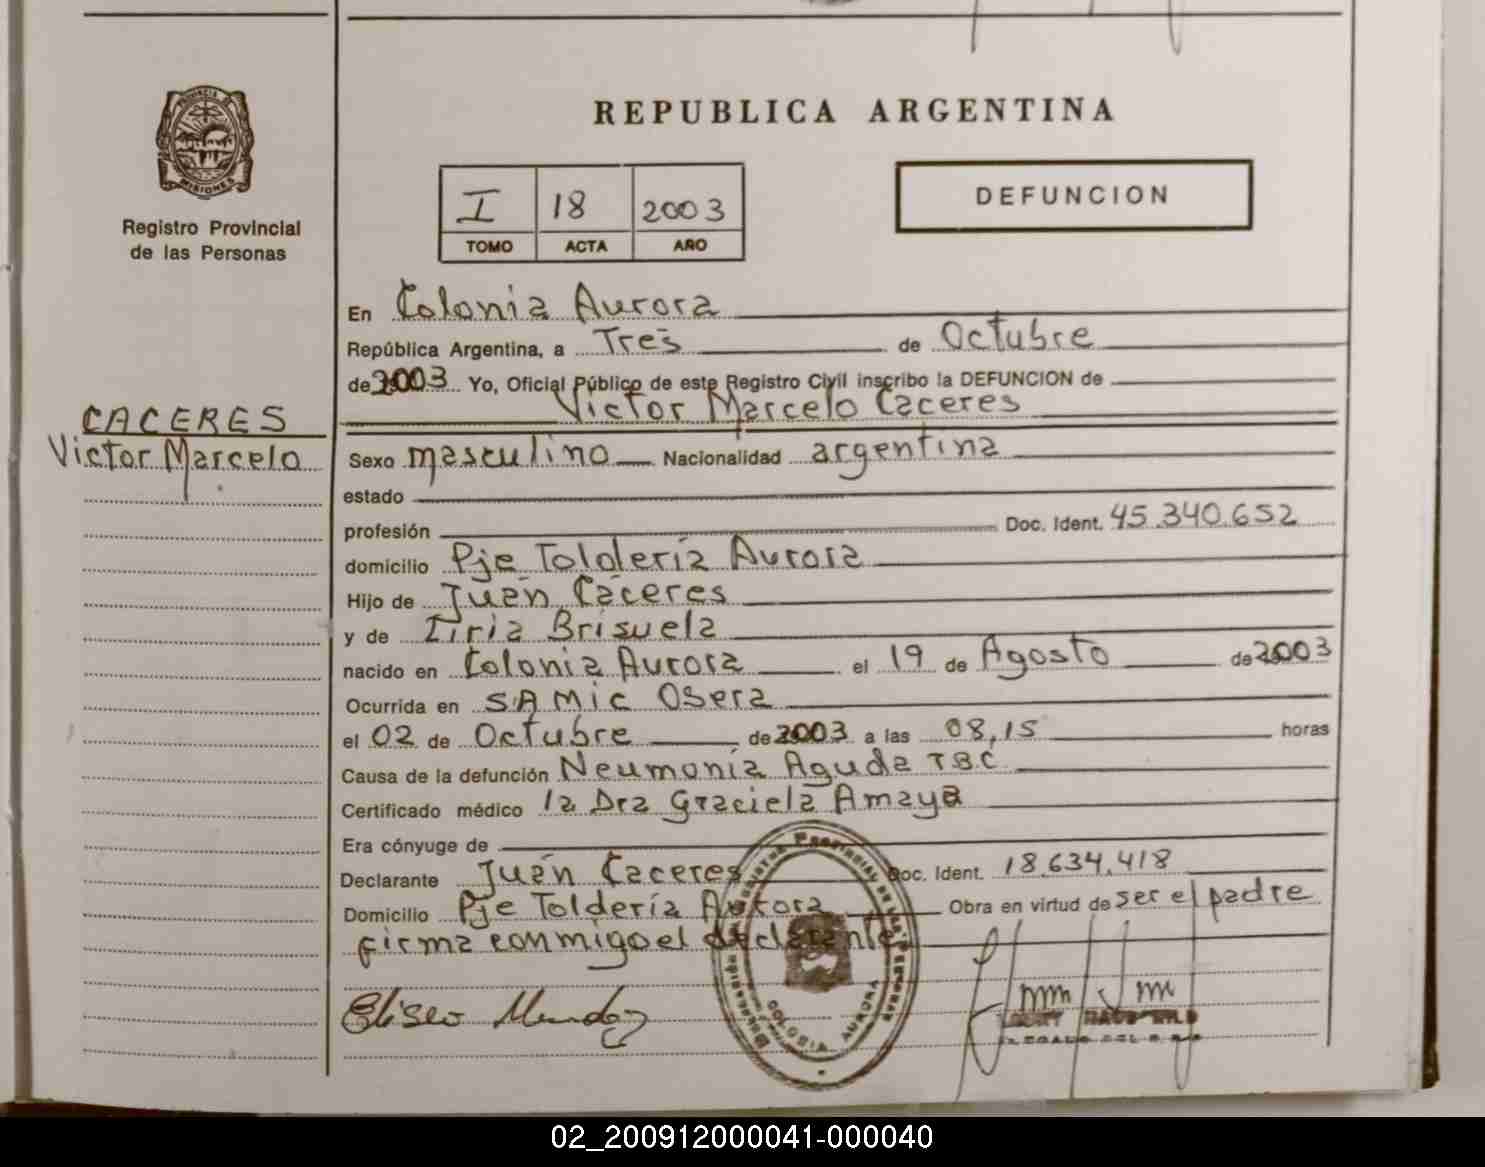 PROVINCIA DE
MISIONES
Registro Provincial
de las Personas
REPUBLICA ARGENTINA
I 18 2003
TOMO ACTA AÑO
DEFUNCION
En Colonia Aurora
República Argentina, a Tres de Octubre
de 2003 Yo, Oficial Público de este Registro Civil inscribo la DEFUNCION de
Victor Marcelo Caceres
CACERES
Victor Marcelo
Sexo masculino Nacionalidad argentina
estado
profesión Doc. Ident. 45.340.652
domicilio Pje Toldería Aurora
Hijo de Juan Caceres
y de Brisuela
nacido en Colonia Aurora el 19 de Agosto de 2003
Ocurrida en SAMIC Osera
el 02 de Octubre de 2003 a las 08,15 horas
Causa de la defunción Neumonía Aguda TBC
Certificado médico la Dra Graciela Amaya
Era cónyuge de
Declarante Juan Caceres Doc. Ident. 18.634.418
Domicilio Pje Toldería Aurora Obra en virtud de ser el padre
firma conmigo el declarante
COLONIA AURORA
Eliseo
02_200912000041-000040